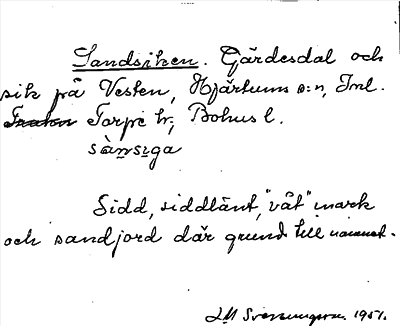 Sandsiken. Gärdesdal och
sik på Vesten, Hjärtums s:n, Inl.
Torpe hr, Bohusl.
sàmsiga
Sidd, siddlänt, "våt" mark
och sandjord där grund till namnet.
1951.